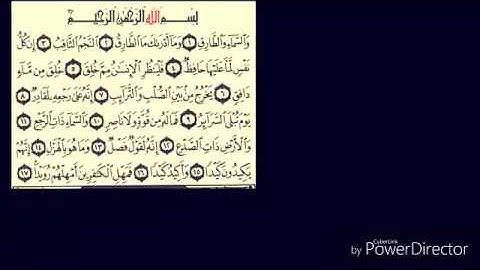 بِسْمِ ٱللَّهِ ٱلرَّحْمَٰنِ ٱلرَّحِيمِ
وَٱلسَّمَآءِ وَٱلطَّارِقِ ١ وَمَآ أَدْرَىٰكَ مَا ٱلطَّارِقُ ٢ ٱلنَّجْمُ ٱلثَّاقِبُ ٣ إِن كُلُّ
نَفْسٍ لَّمَّا عَلَيْهَا حَافِظٌ ٤ فَلْيَنظُرِ ٱلْإِنسَٰنُ مِمَّ خُلِقَ ٥ خُلِقَ مِن مَّآءٍ
دَافِقٍ ٦ يَخْرُجُ مِنۢ بَيْنِ ٱلصُّلْبِ وَٱلتَّرَآئِبِ ٧ إِنَّهُۥ عَلَىٰ رَجْعِهِۦ لَقَادِرٌ ٨
يَوْمَ تُبْلَى ٱلسَّرَآئِرُ ٩ فَمَا لَهُۥ مِن قُوَّةٍ وَلَا نَاصِرٍ ١٠ وَٱلسَّمَآءِ ذَاتِ ٱلرَّجْعِ ١١
وَٱلْأَرْضِ ذَاتِ ٱلصَّدْعِ ١٢ إِنَّهُۥ لَقَوْلٌ فَصْلٌ ١٣ وَمَا هُوَ بِٱلْهَزْلِ ١٤ إِنَّهُمْ
يَكِيدُونَ كَيْدًا ١٥ وَأَكِيدُ كَيْدًا ١٦ فَمَهِّلِ ٱلْكَٰفِرِينَ أَمْهِلْهُمْ رُوَيْدًۢا ١٧
CyberLink
by PowerDirector